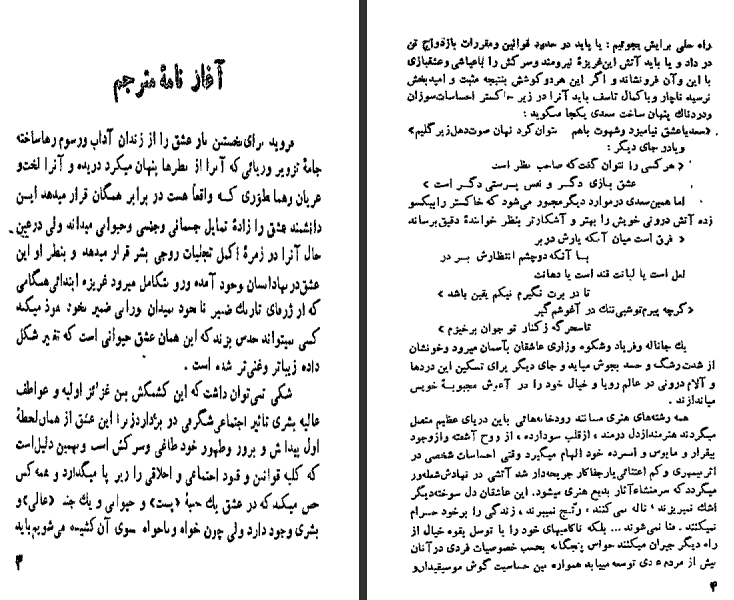 آغاز نامهٔ مترجم
فروید برای نخستین بار عشق را از زندان آداب ورسوم رهاساخته
جامهٔ تزویر وریائی که آنرا از نظرها پنهان میکرد دریده و آنرا لخت‌و
عریان وهمانطوری کـه واقعاً هست در برابر همگان قرار میدهد ایـن
دانشمند عشق را زادهٔ تمایل جسمانی وجنسی وحیوانی میداند ولی درعین
حال آنرا در زمرهٔ اکمل تجلیات روحی بشر قرار میدهد و بنظر او این
عشق‌درنهادانسان بوجود آمده ورو بتکامل میرود غریزه ابتدائی‌هنگامی
که از ژرفای تاریك ضمیر نا خود بمیدان نورانی ضمیر بخود نفوذ میکند
کسی نمیتواند حدس بزندکه این همان عشق حیوانی است که تغییر شکل
داده زیباتر وغنی‌تر شده است .
شکی نمی‌توان داشت که این کشمکش بین غرائز اولیه و عواطف
عالیه بشری تاثیر اجتماعی‌شگرفی در برداردزیرا این عشق از همان‌لحظهٔ
اول پیدا ش و بروز وظهور خود طاغی وسرکش است وبهمین دلیل‌است
که کلیه قوانین و قیود اجتماعی و اخلاقی را زیر پا میگذارد و همه‌کس
حس میکندکه در عشق یك جنبهٔ «پست» و حیوانی و یك جنبه «عالی» و
بشری وجود دارد ولی چون خواه وناخواه بسوی آن کشیده می‌شویم‌باید
۳
راه حلی برایش بجوئیم : یا باید در حدود قوانین ومقررات بازدواج تن
در داد و یا باید آتش این‌غریزهٔ نیرومند وسرکش را باعیاشی وعشقبازی
با این وآن فرونشاند و اگر این هردوکوشش بنتیجه مثبت و امیدبخش
نرسید ناچار وباکمال تاسف باید آنرا در زیر خاکستر احساسات‌سوزان
ودردناك پنهان ساخت سعدی یکجا میگوید :
«سعدیاعشق نیامیزد وشهوت باهم نتوان‌کرد نهان صوت‌دهل‌زیرگلیم»
ویادرجای دیگر :
« هرکسی را نتوان گفت‌که صاحب نظر است
عشق بـازی دگـر و نفس پـرستی دگـر است »
اما همین‌سعدی درموارد دیگرمجبور می‌شود که خاکستر رابیکسو
زده آتش درونی خویش را بهتر و آشکارتر بنظر خوانندهٔ دقیق‌برساند
« فرق است میان آنکه یارش دربر
بـا آنکه دوچشم انتظارش بـر در
لعل است یا لبانت قند است یا دهانت
تا در برت نگیرم نیکم یقین باشد »
«گرچه پیرم‌توشبی‌تنك در آغوشم‌گیر
تاسحرگه زکنار تو جوان برخیزم »
یك جاناله وفریاد وشکوه وزاری عاشقان بآسمان میرود وخونشان
از شدت‌رشگ و حسد بجوش میاید و جای دیگر برای تسکین این دردها
و آلام درونی در عالم رویا و خیال خود را در آغوش محبوبـهٔ خویش
میاندازند .
همه رشته‌های هنری مـانند رودخانه‌هائی باین دریای عظیم متصل
میگردند هنرمندازدل دردمند ، ازقلب سودازده ، از روح آشفته وازوجود
بیقرار و مایوس و افسرده خود الهام میگیرد وقتی احساسات شخصی در
اثربیمهری و کم اعتنائی‌یارجفاکار جریحه‌دار شد آتشی در نهادش‌شعله‌ور
میگرددکه سرمنشاءآثار بدیع هنری میشود. این عاشقان دل سوخته‌دیگر
اشك نمیریزند ، ناله نمی‌کنند ، رنج نمیبرند ، زندگی را برخود حـرام
نمیکنند . فنا نمی‌شوند ... بلکه ناکامیهای خود را با توسل بقوه خیال از
راه دیگر جبران میکنند حواس پنجگانه بحسب خصوصیات فردی درآنان
بیش از مردم عادی توسعه مییابد همواره بین حساسیت گوش موسیقیدان‌و
۴